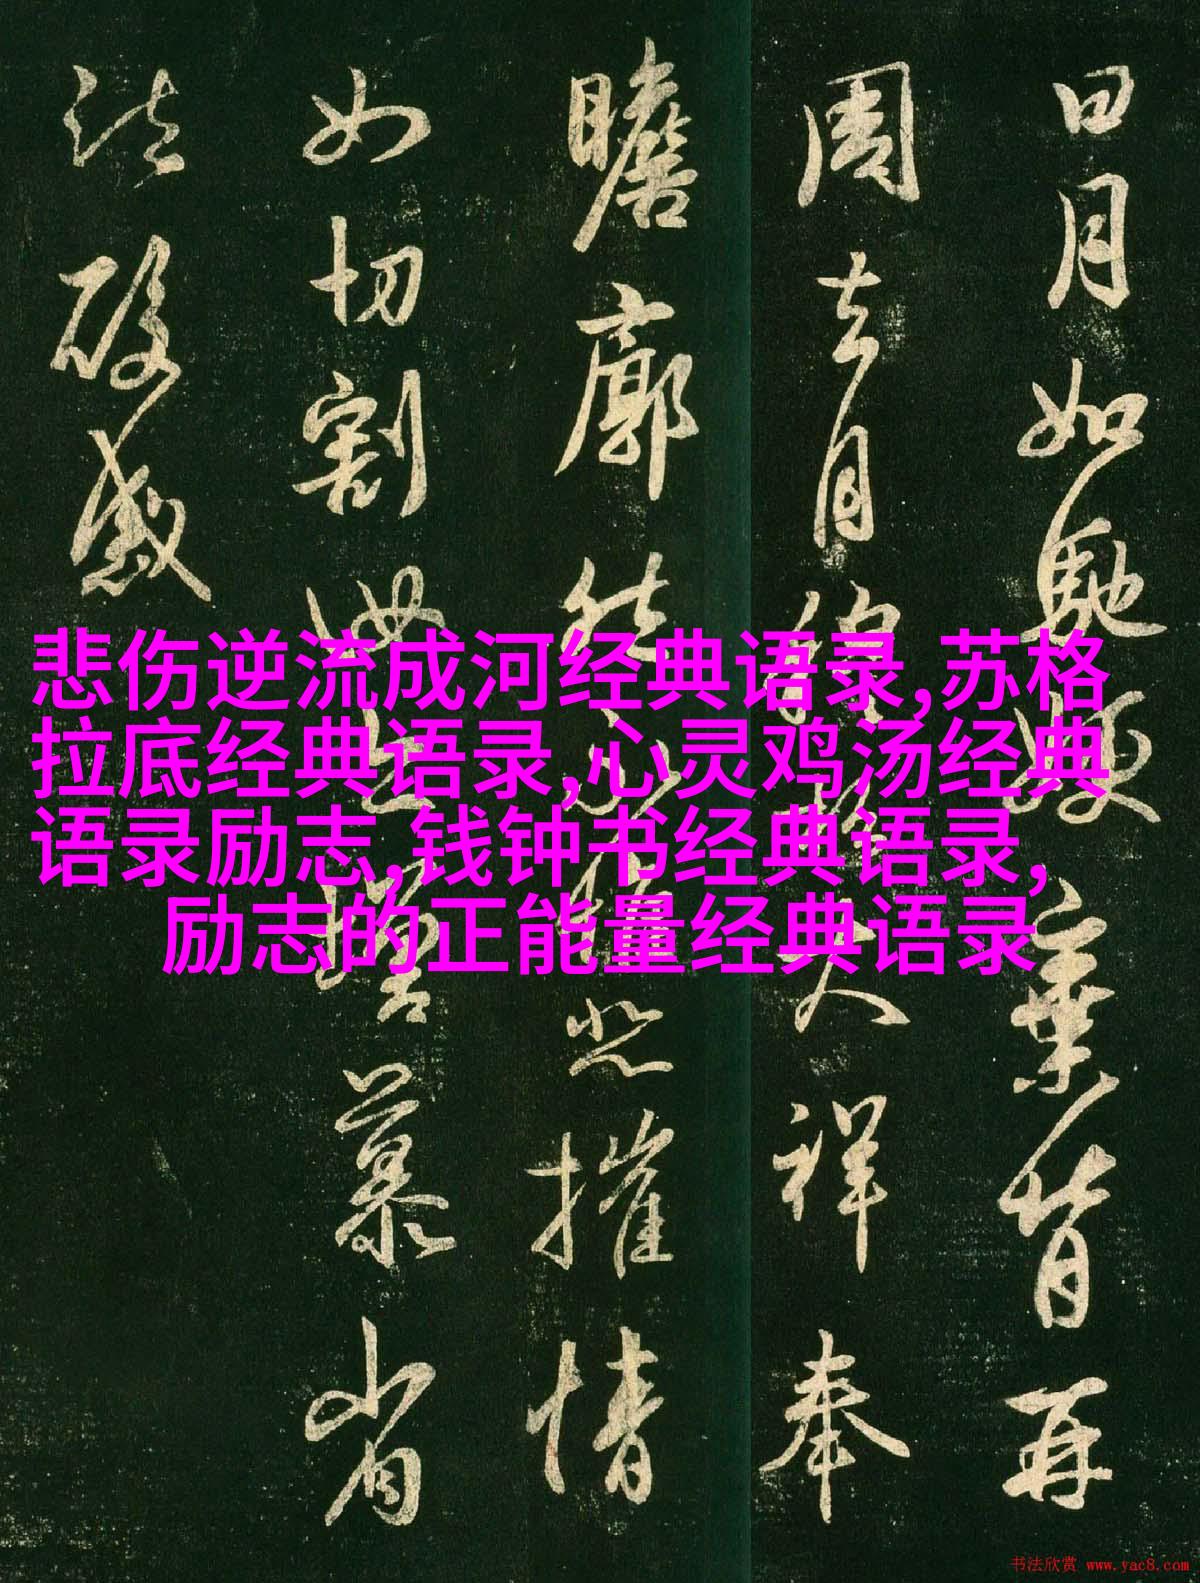 日月如馳嫂棄背再
周去月大祥奉
瞻廓然永惟悲摧情
如切割增慕省
酸感
悲伤逆流成河经典语录,苏格
拉底经典语录,心灵鸡汤经典
语录励志,钱钟书经典语录,
励志的正能量经典语录
书法欣赏 www.yac8.com